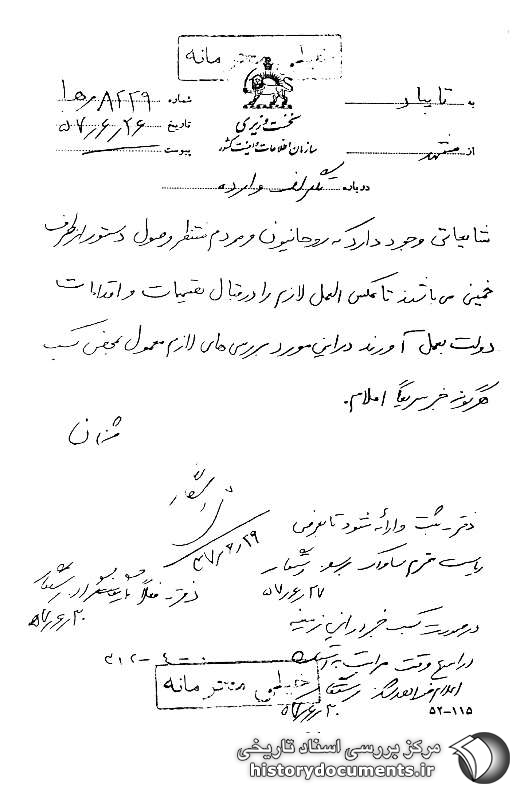 خیلی محرمانه
به تایباد
شماره ۸۲۲۹
نخست وزیری
تاریخ ۵۷/۶/۲۶
سازمان اطلاعات و امنیت کشور
از مشهد
پیوست
درباره تلگراف وارده
شایعاتی وجود دارد که روحانیون و مردم منتظر وصول دستور از طرف
خمینی می باشند تا عکس العمل لازم را در قبال تصمیمات و اقدامات
دولت بعمل آورند در این مورد بررسی های لازم معمول بمحض کسب
هرگونه خبر سریعاً اعلام.
دفتر ثبت و ارائه شود تا بعرض
ریاست محترم ساواک برسد
۵۷/۶/۲۷
دفتر فعلاً
۵۷/۶/۳۰
در صورت کسب خبر در این زمینه
در اسرع وقت مراتب
۳۱۲-۴۰۰
خیلی محرمانه
۵۷/۶/۳۰
۵۲-۱۱۵
مرکز بررسی اسناد تاریخی
historydocuments.ir